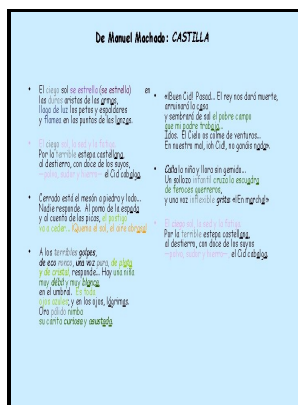 De Manuel Machado: CASTILLA
• El ciego sol se estrella (se estrella) en
las duras aristas de las armas,
llaga de luz los petos y espaldares
y flamea en las puntas de las lanzas.
• El ciego sol, la sed y la fatiga.
Por la terrible estepa castellana,
al destierro, con doce de los suyos,
—polvo, sudor y hierro— el Cid cabalga.
• Cerrado está el mesón a piedra y lodo...
Nadie responde. Al pomo de la espada
y al cuento de las picas, el postigo
va a ceder... ¡Quema el sol, el aire abrasa!
• A los terribles golpes,
de eco ronco, una voz pura, de plata
y de cristal, responde... Hay una niña
muy débil y muy blanca,
en el umbral. Es toda
ojos azules; y en los ojos, lágrimas.
Oro pálido nimba
su carita curiosa y asustada.
• «¡Buen Cid! Pasad... El rey nos dará muerte,
arruinará la casa
y sembrará de sal el pobre campo
que mi padre trabaja...
Idos. El Cielo os colme de venturas...
En nuestro mal, ¡oh Cid!, no ganáis nada».
• Calla la niña y llora sin gemido...
Un sollozo infantil cruza la escuadra
de feroces guerreros,
y una voz inflexible grita «¡En marcha!»
• El ciego sol, la sed y la fatiga.
Por la terrible estepa castellana,
al destierro, con doce de los suyos
—polvo, sudor y hierro—, el Cid cabalga.